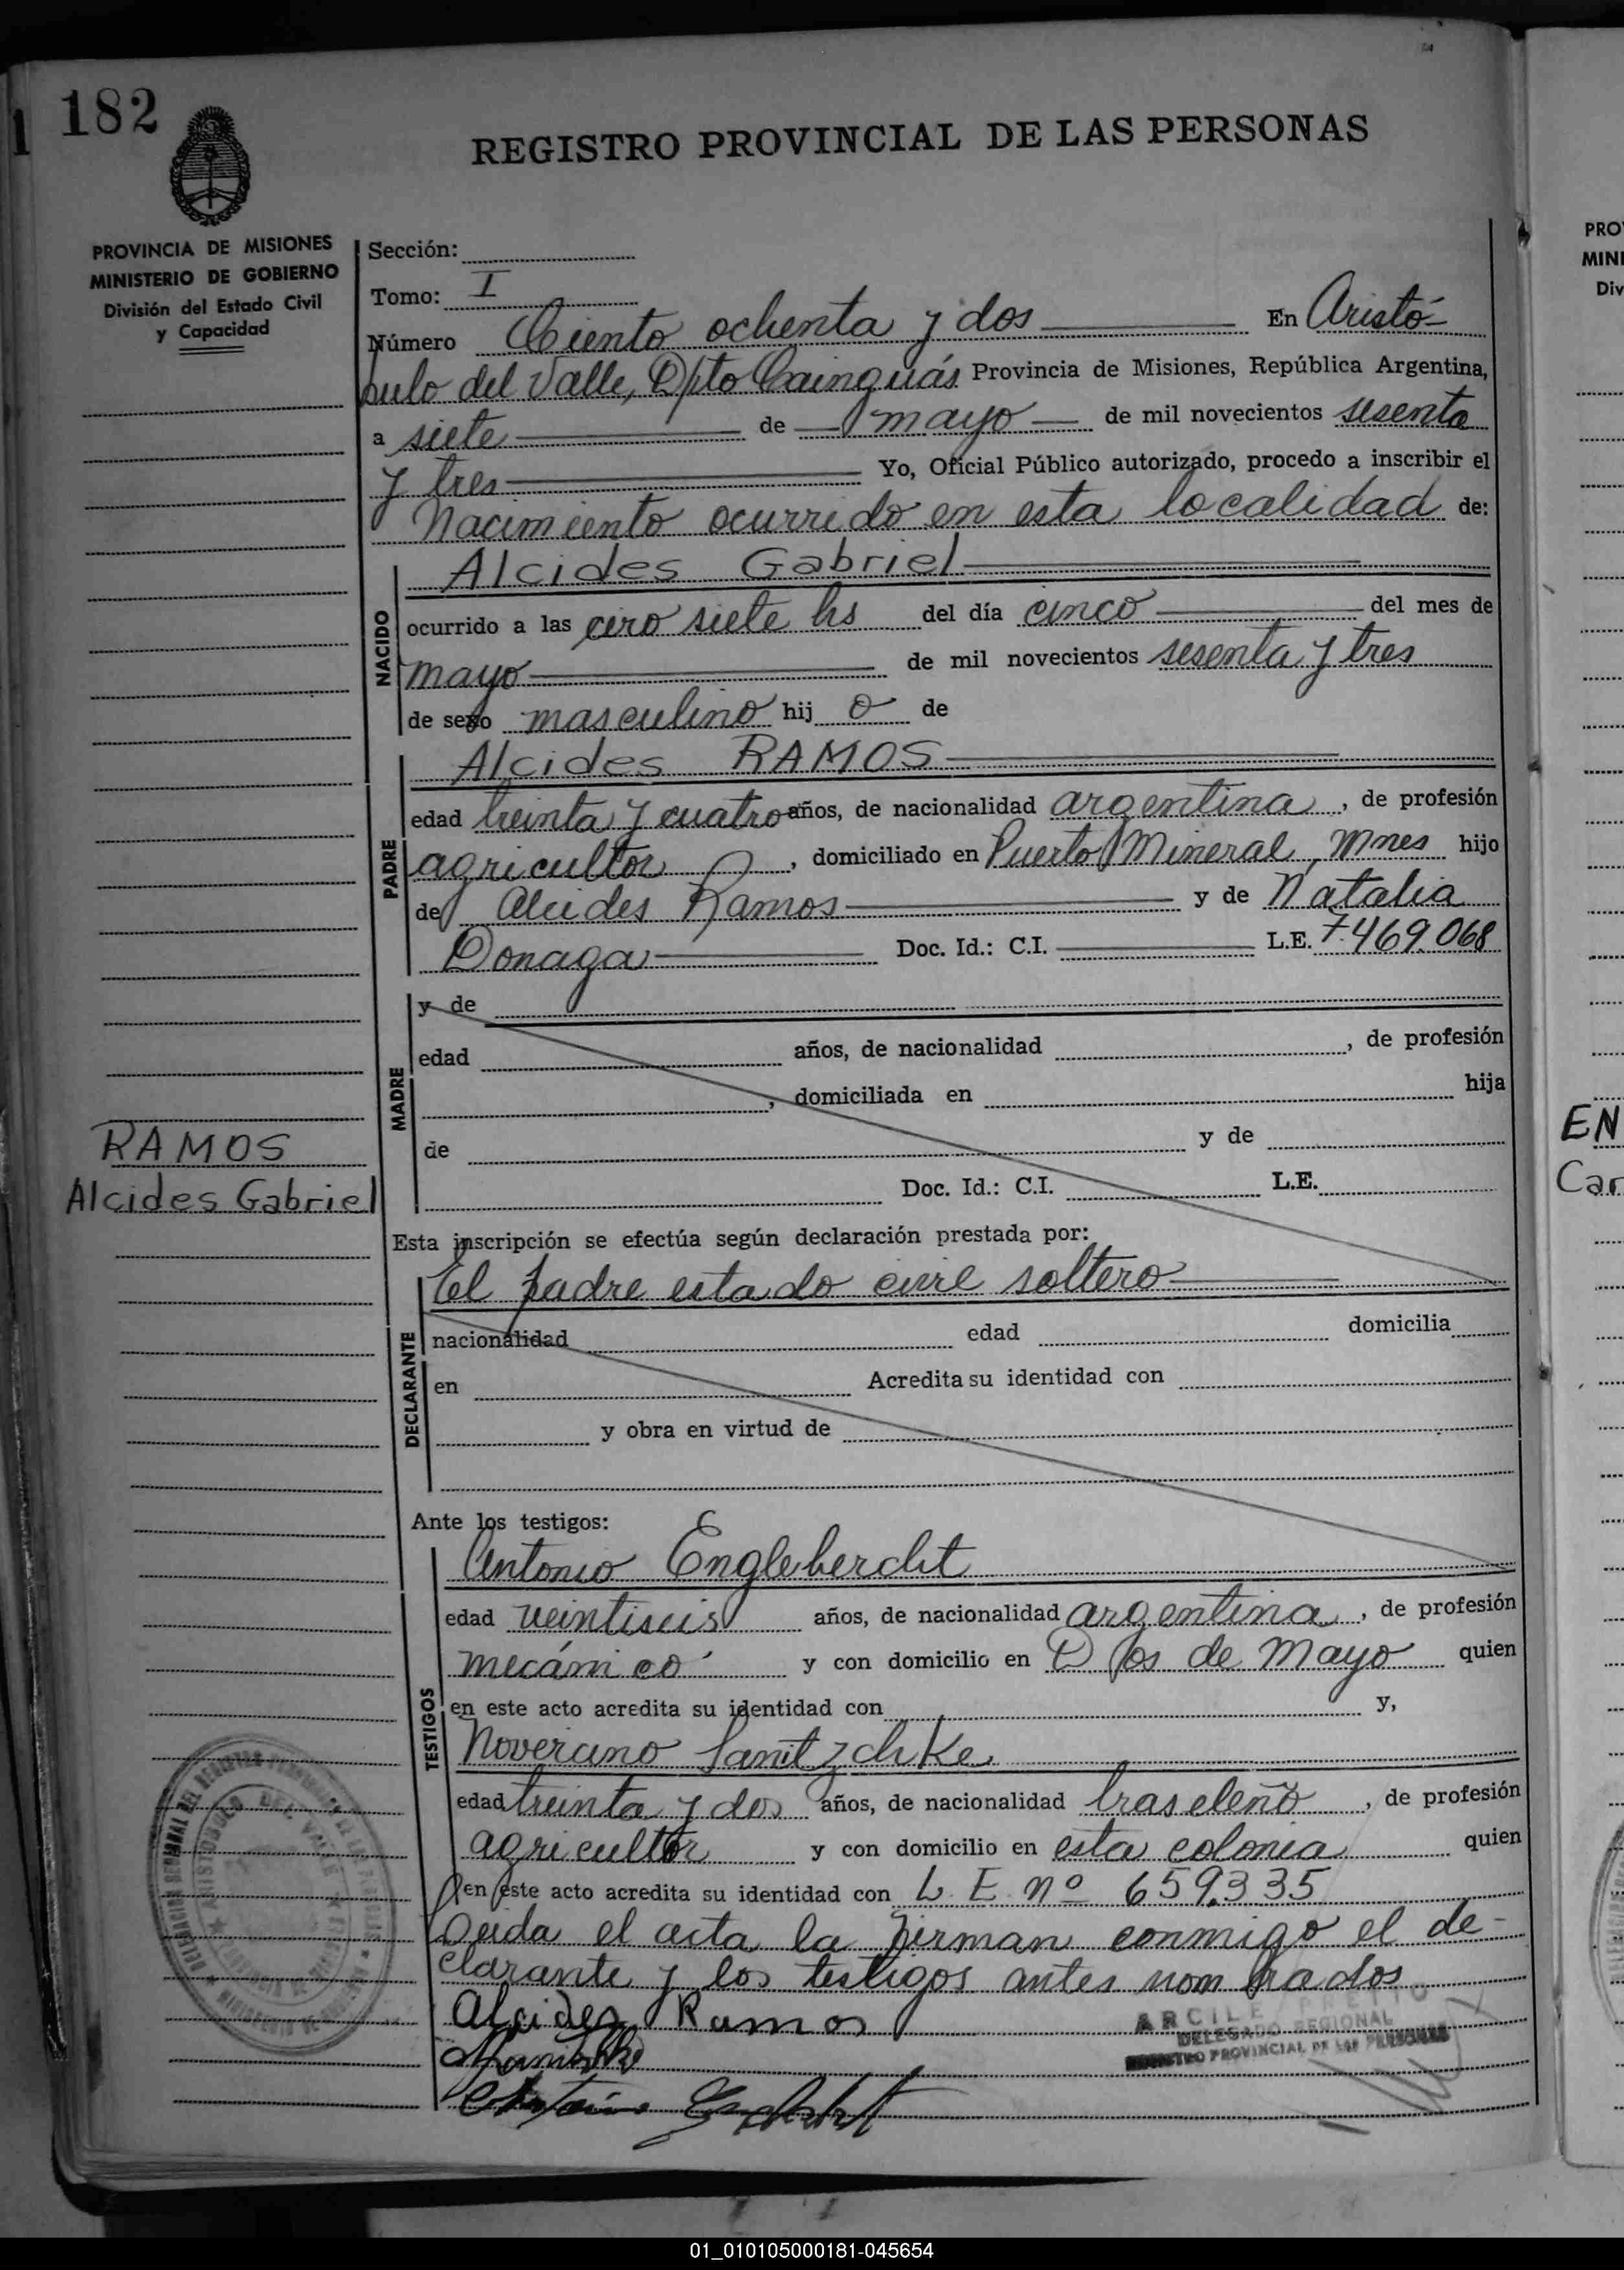 182
REGISTRO PROVINCIAL DE LAS PERSONAS
PROVINCIA DE MISIONES
MINISTERIO DE GOBIERNO
División del Estado Civil
y Capacidad
Sección:
Tomo: I
Número Ciento ochenta y dos En Aristó-
bulo del Valle, Dpto Cainguás Provincia de Misiones, República Argentina,
a siete de mayo de mil novecientos sesenta
y tres Yo, Oficial Público autorizado, procedo a inscribir el
Nacimiento ocurrido en esta localidad de:
NACIDO
Alcides Gabriel
ocurrido a las cero siete hs del día cinco del mes de
mayo de mil novecientos sesenta y tres
de sexo masculino hij o de
PADRE
Alcides RAMOS
edad treinta y cuatro años, de nacionalidad argentina, de profesión
agricultor, domiciliado en Puerto Mineral, Mnes hijo
de Alcides Ramos y de Natalia
Donaga Doc. Id.: C.I. L.E. 7.469.068
MADRE
y de
edad años, de nacionalidad , de profesión
, domiciliada en hija
de y de
Doc. Id.: C.I. L.E.
RAMOS
Alcides Gabriel
Esta inscripción se efectúa según declaración prestada por:
DECLARANTE
El padre estado civil soltero
nacionalidad edad domicilia
en Acredita su identidad con
y obra en virtud de
Ante los testigos:
TESTIGOS
Antonio Engleberdt
edad veintiseis años, de nacionalidad argentina, de profesión
mecánico y con domicilio en Dos de Mayo quien
en este acto acredita su identidad con y,
Noverano
edad treinta y dos años, de nacionalidad braseleño, de profesión
agricultor y con domicilio en esta colonia quien
en este acto acredita su identidad con L. E. nº 659.335
Leida el acta la firman conmigo el de-
clarante y los testigos antes nombrados
Alcides Ramos
DELEGADO REGIONAL
REGISTRO PROVINCIAL DE LAS PERSONAS
PRO
MINI
Div
EN
Car
01_010105000181-045654